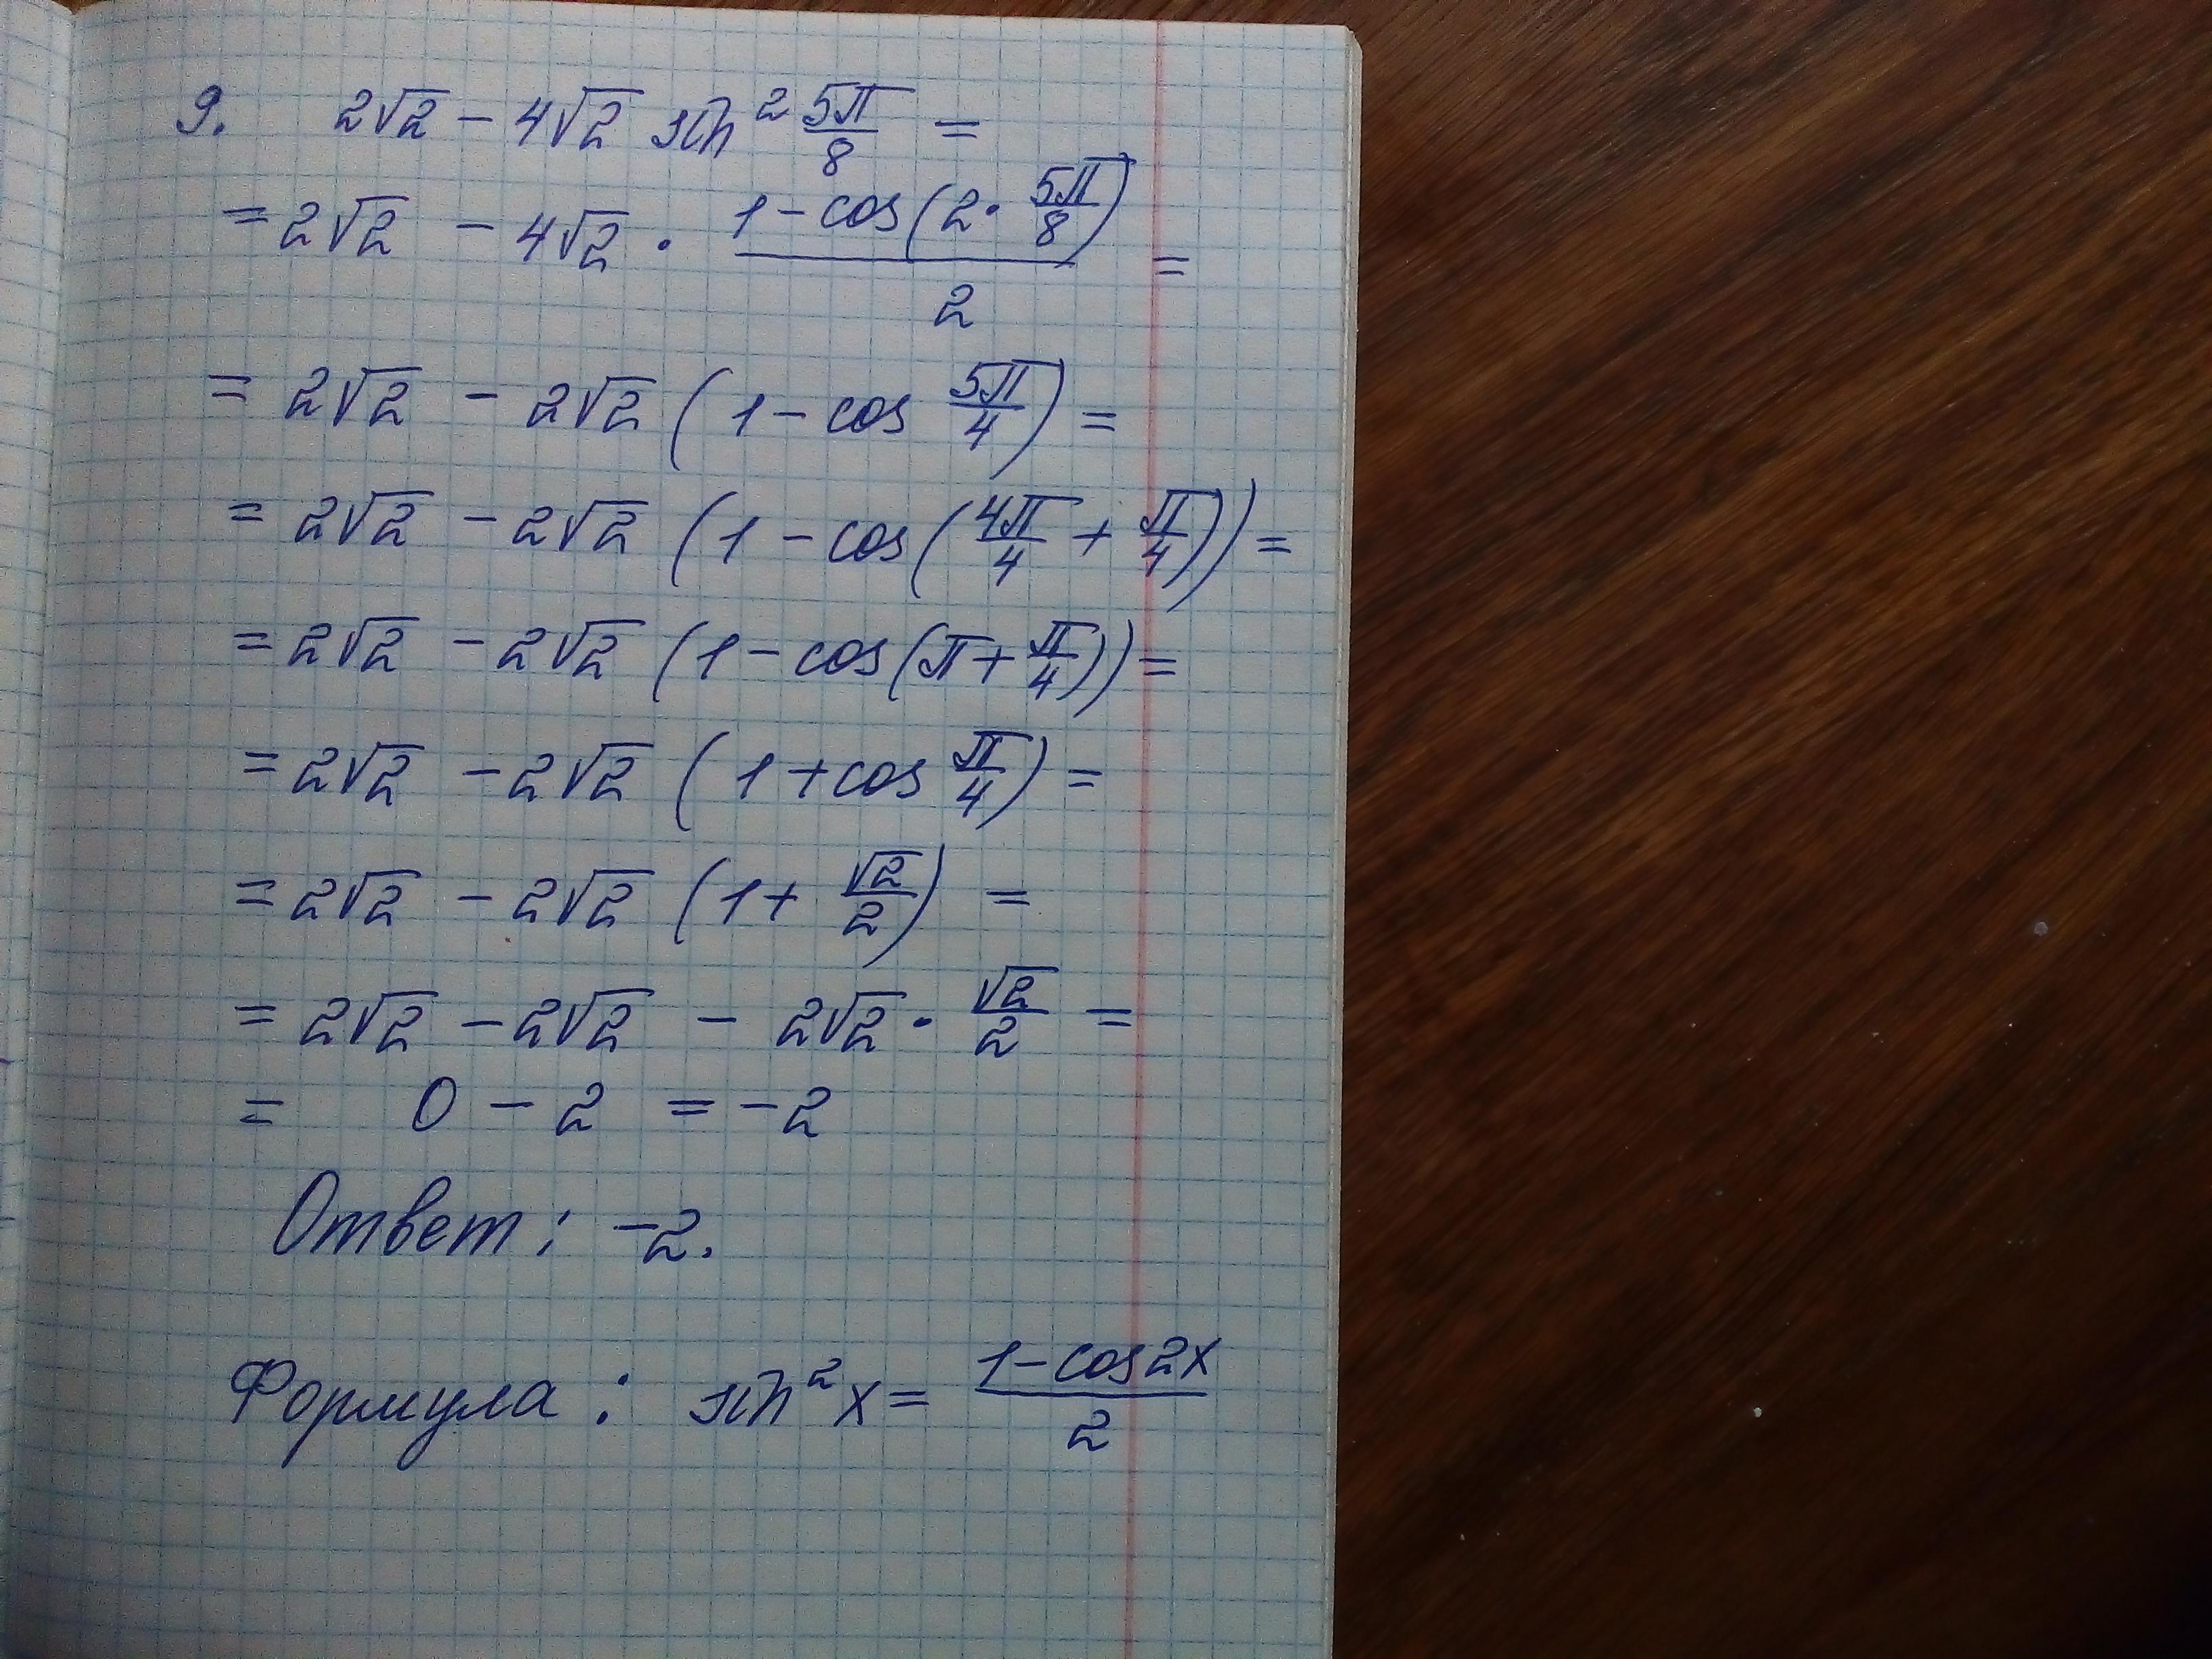 9. 2√2 − 4√2 sin² 5π/8 =
= 2√2 − 4√2 · (1 − cos(2 · 5π/8))/2 =
= 2√2 − 2√2 (1 − cos 5π/4) =
= 2√2 − 2√2 (1 − cos(4π/4 + π/4)) =
= 2√2 − 2√2 (1 − cos(π + π/4)) =
= 2√2 − 2√2 (1 + cos π/4) =
= 2√2 − 2√2 (1 + √2/2) =
= 2√2 − 2√2 − 2√2 · √2/2 =
= 0 − 2 = −2
Ответ: −2.
Формула: sin² x = (1 − cos 2x)/2